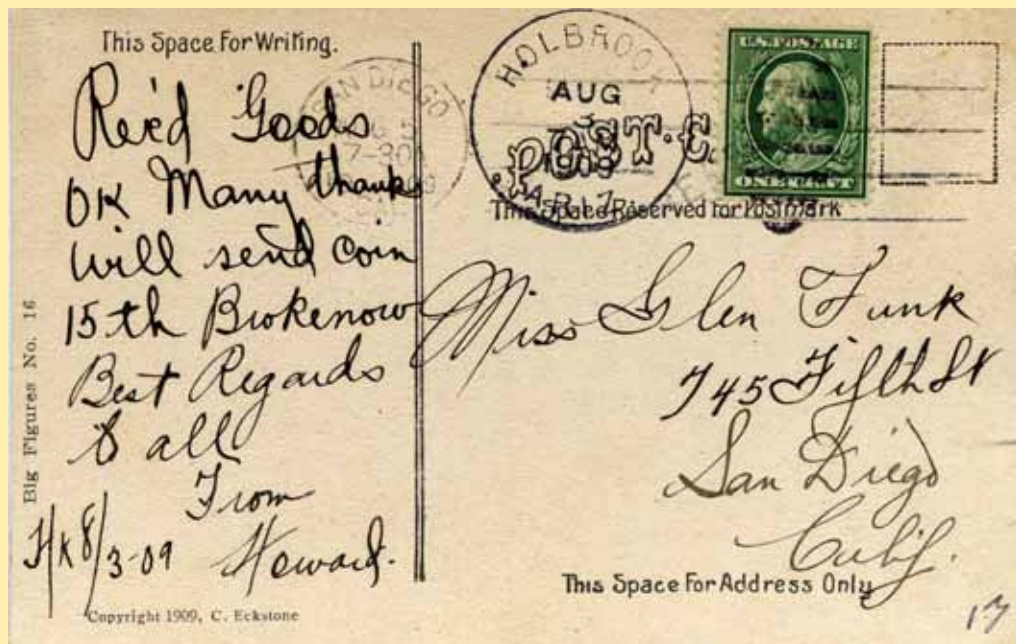 This Space For Writing.
Rec'd Goods
OK Many thanks
Will send coin
15th Broke now
Best Regards
to all
From
Howard.
8/3-09
Big Figures No. 16
Copyright 1909, C. Eckstone
SAN DIEGO
7-30
HOLBROOK
AUG
3
1909
ARIZ
POST-C
U.S. POSTAGE
ONE CENT
This Space Reserved for Postmark
Miss Glen Funk
745 Fifth St
San Diego
Calif.
This Space For Address Only
17